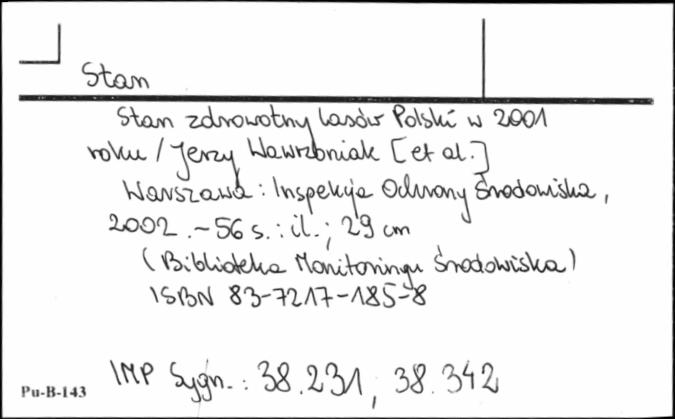 Stan
Stan zdrowotny lasów Polski w 2001
roku / Jerzy Wawrzoniak [et al.]
Warszawa : Inspekcja Ochrony Środowiska,
2002. - 56 s. : il. ; 29 cm
(Biblioteka Monitoringu Środowiska)
ISBN 83-7217-185-8
IMP Sygn. : 38.231 ; 38.342
Pu-B-143